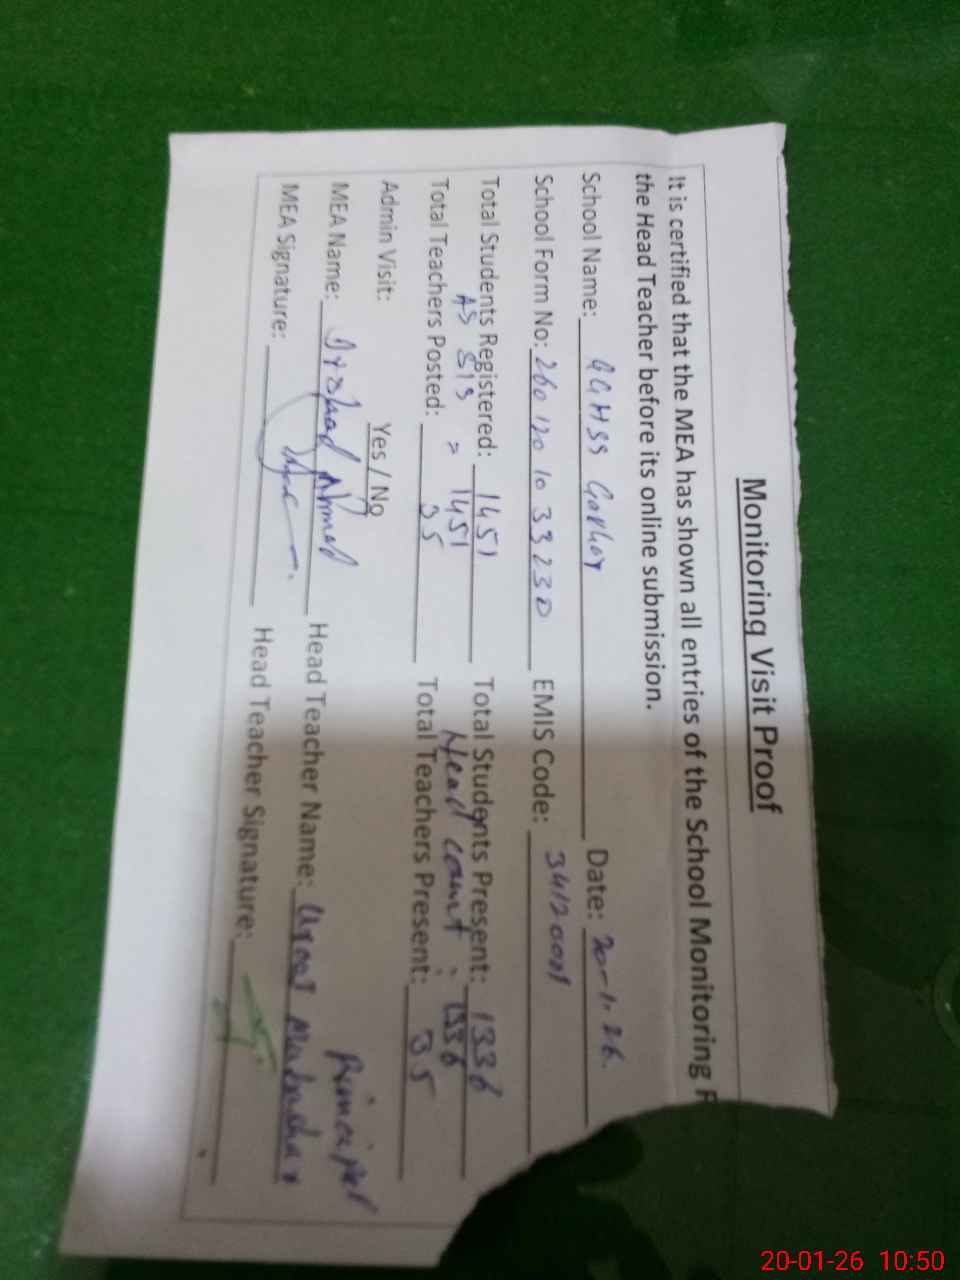 Monitoring Visit Proof
It is certified that the MEA has shown all entries of the School Monitoring F
the Head Teacher before its online submission.
School Name: GGHSS Date: 20-1-26.
School Form No: 260120 10 33230 EMIS Code: 34120091
Total Students Registered: 1451 Total Students Present: 1336
As SIS = 1451 Head count : 1336
Total Teachers Posted: 35 Total Teachers Present: 35
Admin Visit: Yes / No
Principal
MEA Name: Irshad Ahmed Head Teacher Name:
MEA Signature: Head Teacher Signature:
20-01-26 10:50